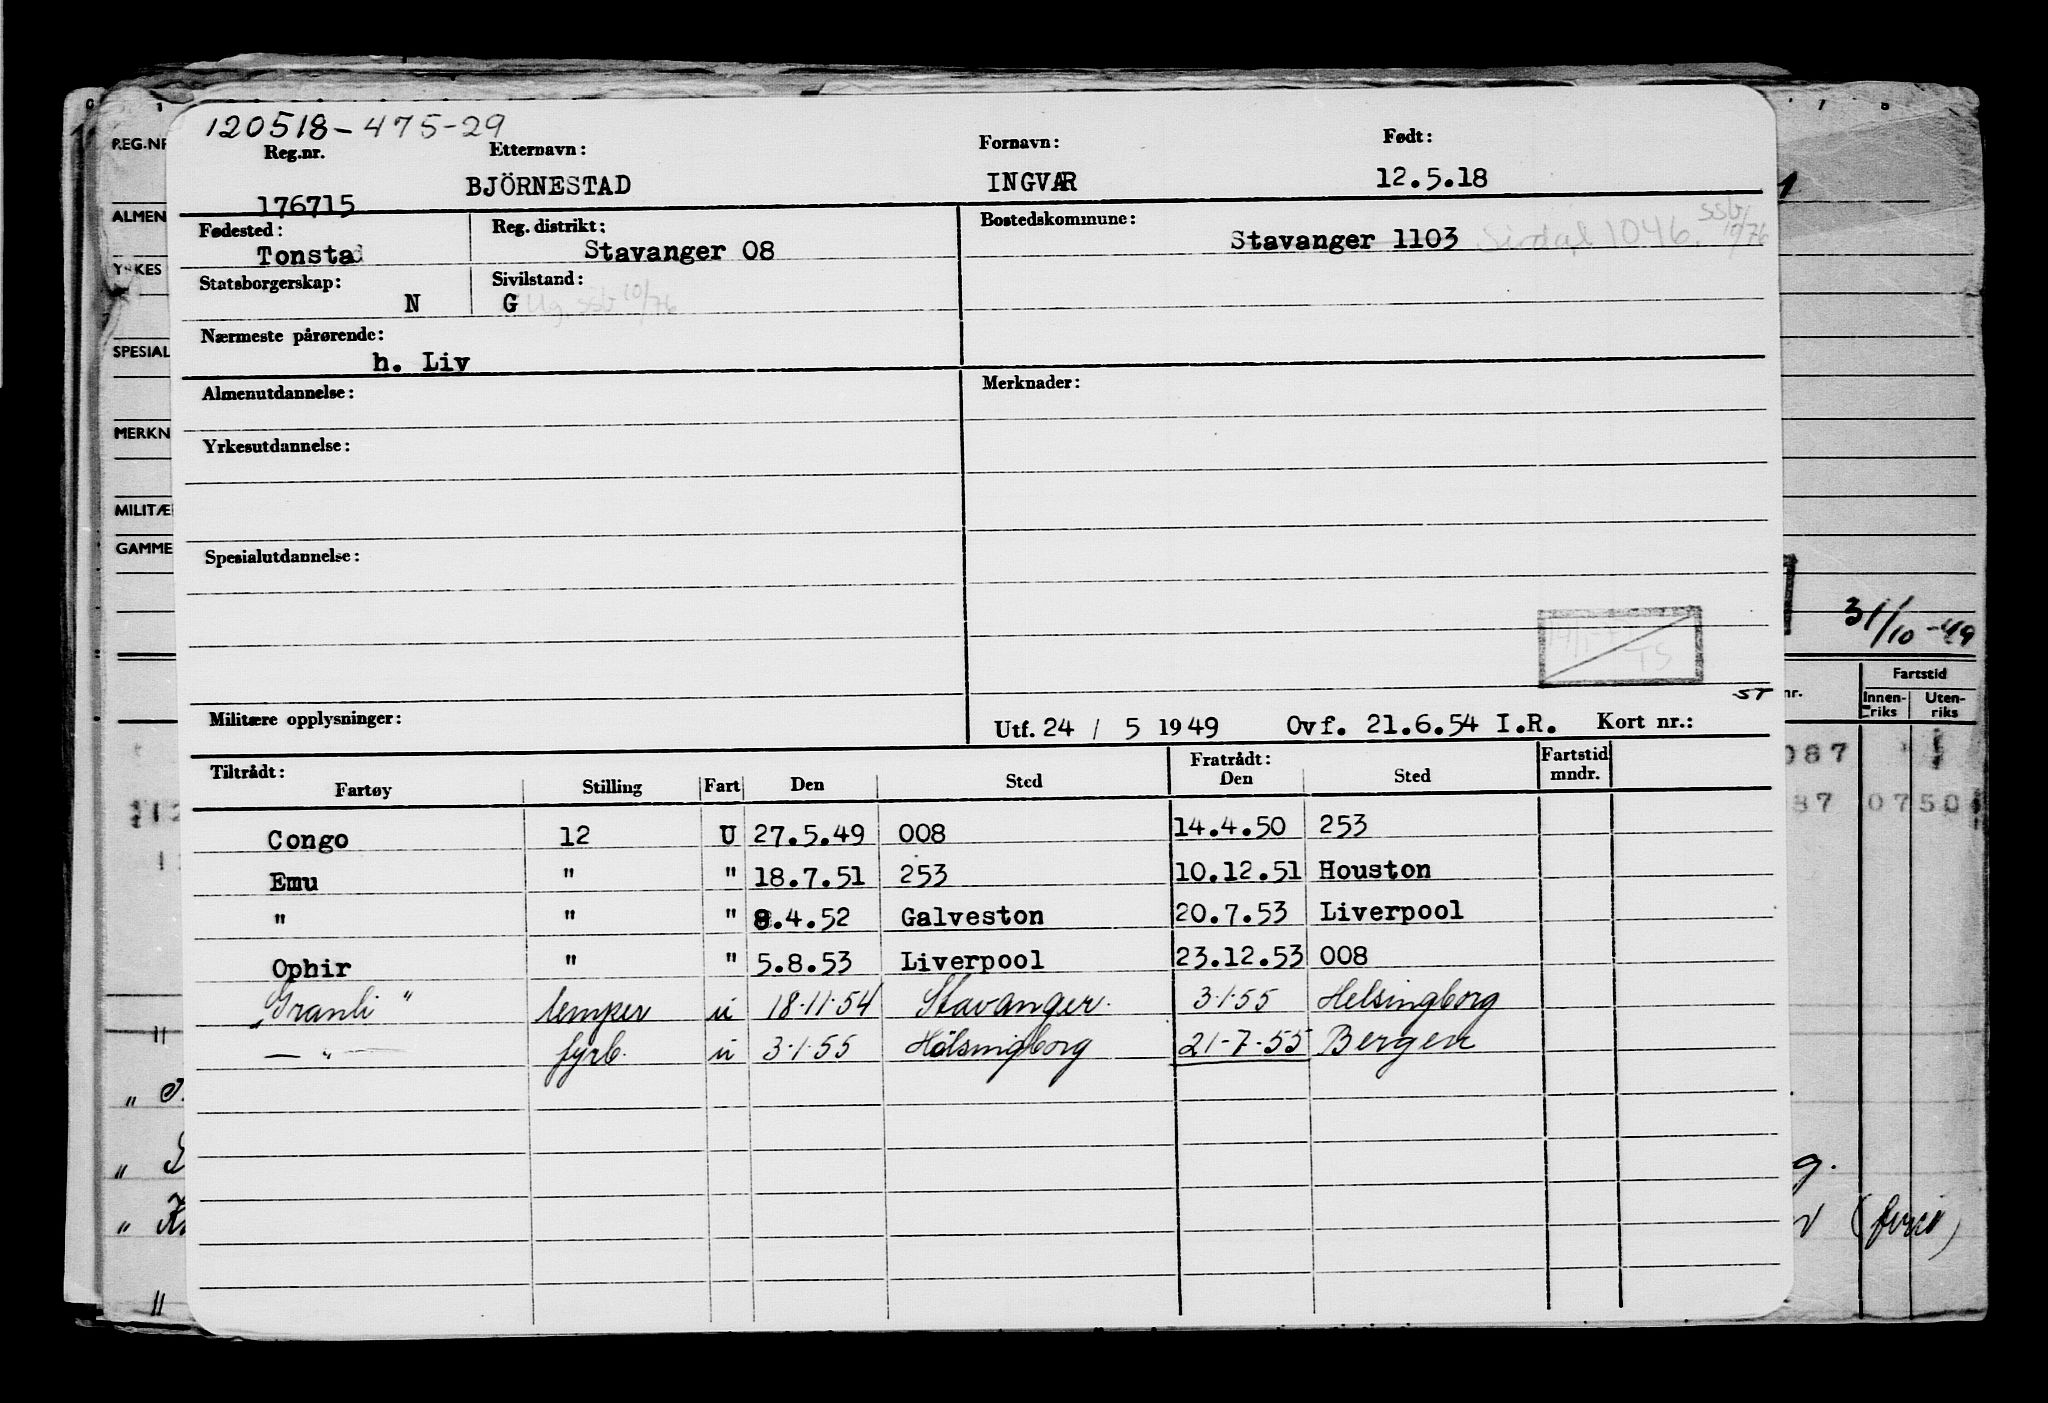 120518-475-29
Reg.nr. Etternavn: Fornavn: Født:
176715 BJÖRNESTAD INGVAR 12.5.18
Fødested: Reg. distrikt: Bostedskommune:
Tonstad Stavanger 08 Stavanger 1103 Sirdal 1046. ssb 10/76
Statsborgerskap: Sivilstand:
N G Ug. ssb 10/76
Nærmeste pårørende:
h. Liv
Almenutdannelse: Merknader:
Yrkesutdannelse:
Spesialutdannelse:
TS
ST
Militære opplysninger: Utf. 24 / 5 1949 Ovf. 21.6.54 I.R. Kort nr.:
Tiltrådt: Fratrådt: Fartstid
Fartøy Stilling Fart Den Sted Den Sted mndr.
Congo 12 U 27.5.49 008 14.4.50 253
Emu " " 18.7.51 253 10.12.51 Houston
" " " 8.4.52 Galveston 20.7.53 Liverpool
Ophir " " 5.8.53 Liverpool 23.12.53 008
„Granli" lemper u 18.11.54 Stavanger. 3.1.55 Helsingborg
— " — fyrb. u 3.1.55 Hölsingborg 21-7-55 Bergen
REG.NR
ALMEN
YRKES
SPESIAL
MERKN
MILITÆ
GAMME
31/10-49
nr. Fartstid
Innen-riks Uten-riks
087
87 07 50
g.